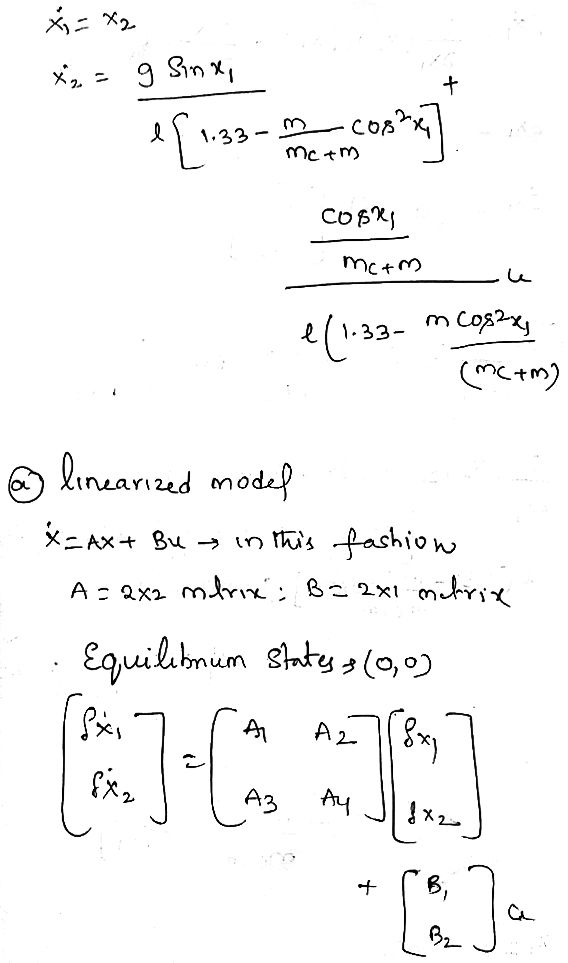 ẋ₁ = x₂
ẋ₂ = g Sin x₁ / l[1.33 - m/(mc+m) cos²x₁] +
(cosx₁ / (mc+m)) / l(1.33 - m cos²x₁/(mc+m)) u
(a) linearized model
ẋ = AX + Bu → in this fashion
A = 2x2 mtrix ; B = 2x1 mtrix
Equilibrium States → (0,0)
[δẋ₁ δẋ₂] = [A1 A2 A3 A4] [δx₁ δx₂]
+ [B₁ B₂] u